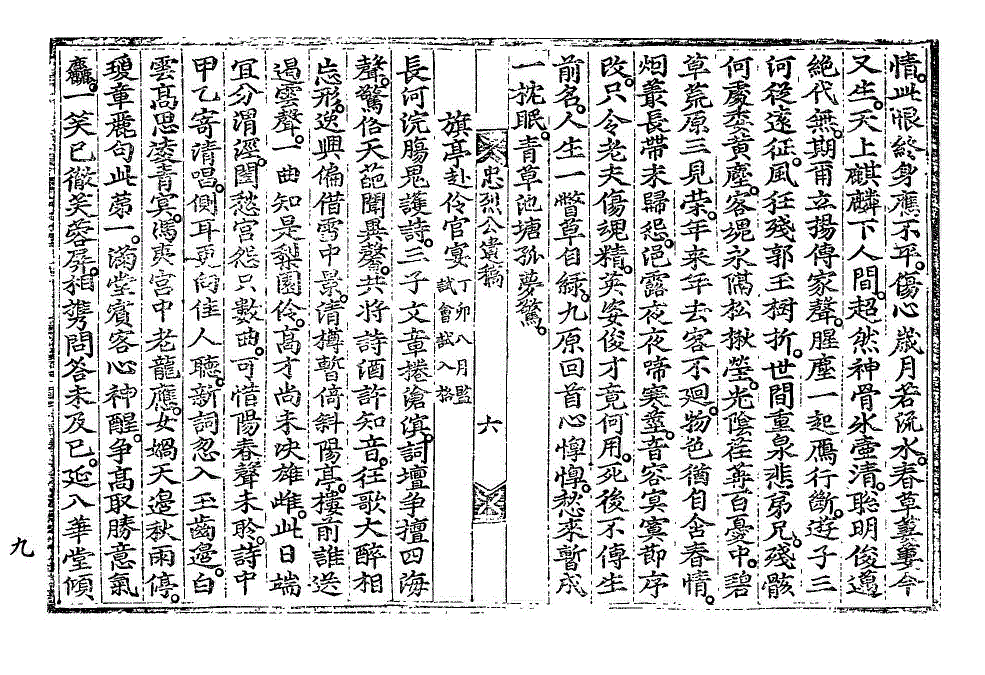 情。此眼終身應不平。傷心歲月若流水。春草萋萋今
又生。天上麒麟下人間。超然神骨氷壺清。聡明俊邁
絶代無。期甫立揚傳家聲。腥塵一起鴈行斷。遊子三
河從遠征。風狂殘郭王樹折。世間重泉悲弟兄。殘骸
何處委黃塵。客魂永隔松楸塋。光陰荏苒百憂中。碧
草荒原三見榮。年來年去客不廻。物色猶自含春情。
烟叢長帶未歸怨。浥露夜夜啼寒螿。音容寞寞節序
改。只令老夫傷魂精。英姿俊才竟何用。死後不傳生
前名。人生一瞥草自綠。九原回首心惸惸。愁來暫成
一枕眠。青草池塘孤夢驚。
忠烈公遺稿
六
旗亭赴伶官宴 丁卯八月監試會試入格
長河浣膓鬼護詩。三子文章捲滄溟。詞壇爭擅四海
聲。驚俗天葩聞異馨。共將詩酒許知音。狂歌大醉相
忘形。逸興偏借雪中景。清樽暫倚斜陽亭。樓前誰送
遏雲聲。一曲知是梨園伶。高才尚未决雄雌。此日端
宜分渭涇。閨愁宮怨只數曲。可惜陽春聲未聆。詩中
甲乙寄清唱。側耳更向佳人聽。新詞忽入玉齒邊。白
雲高思凌青㝠。馮夷宮中老龍應。女媧天邊秋雨停。
瓊章麗句此第一。滿堂賓客心神醒。爭高取勝意氣
麤。一笑已徹芙蓉屛。相携問答未及已。延入華堂傾
九